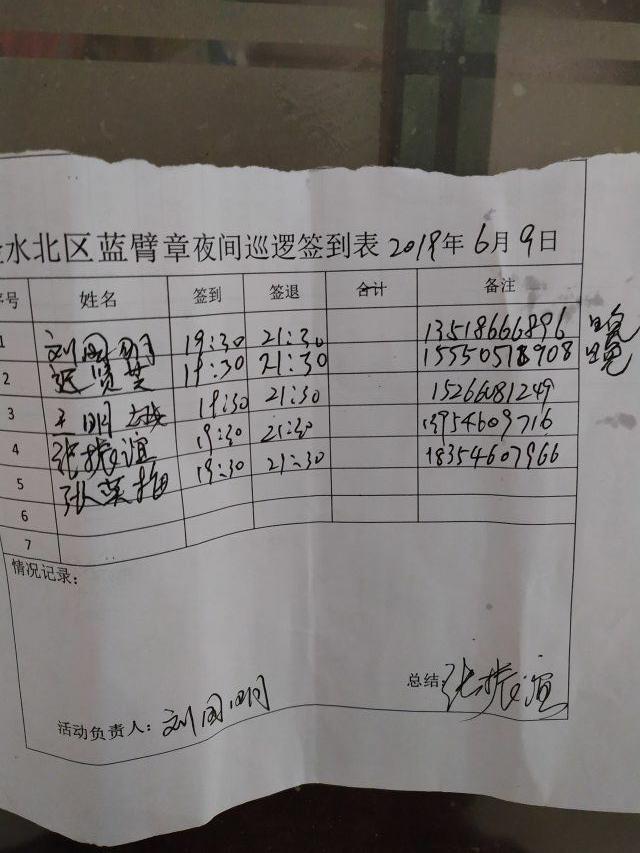 水北区蓝臂章夜间巡逻签到表 2019年6月9日
序号 姓名 签到 签退 合计 备注
1 刘同明 19:30 21:30 13518666896
2 迟贤芝 19:30 21:30 15550518908
3 王明 19:30 21:30 15266081249
4 张振谊 19:30 21:30 13954609716
5 张荣梅 19:30 21:30 18354607966
6
7
情况记录：
总结：张振谊
活动负责人：刘同明